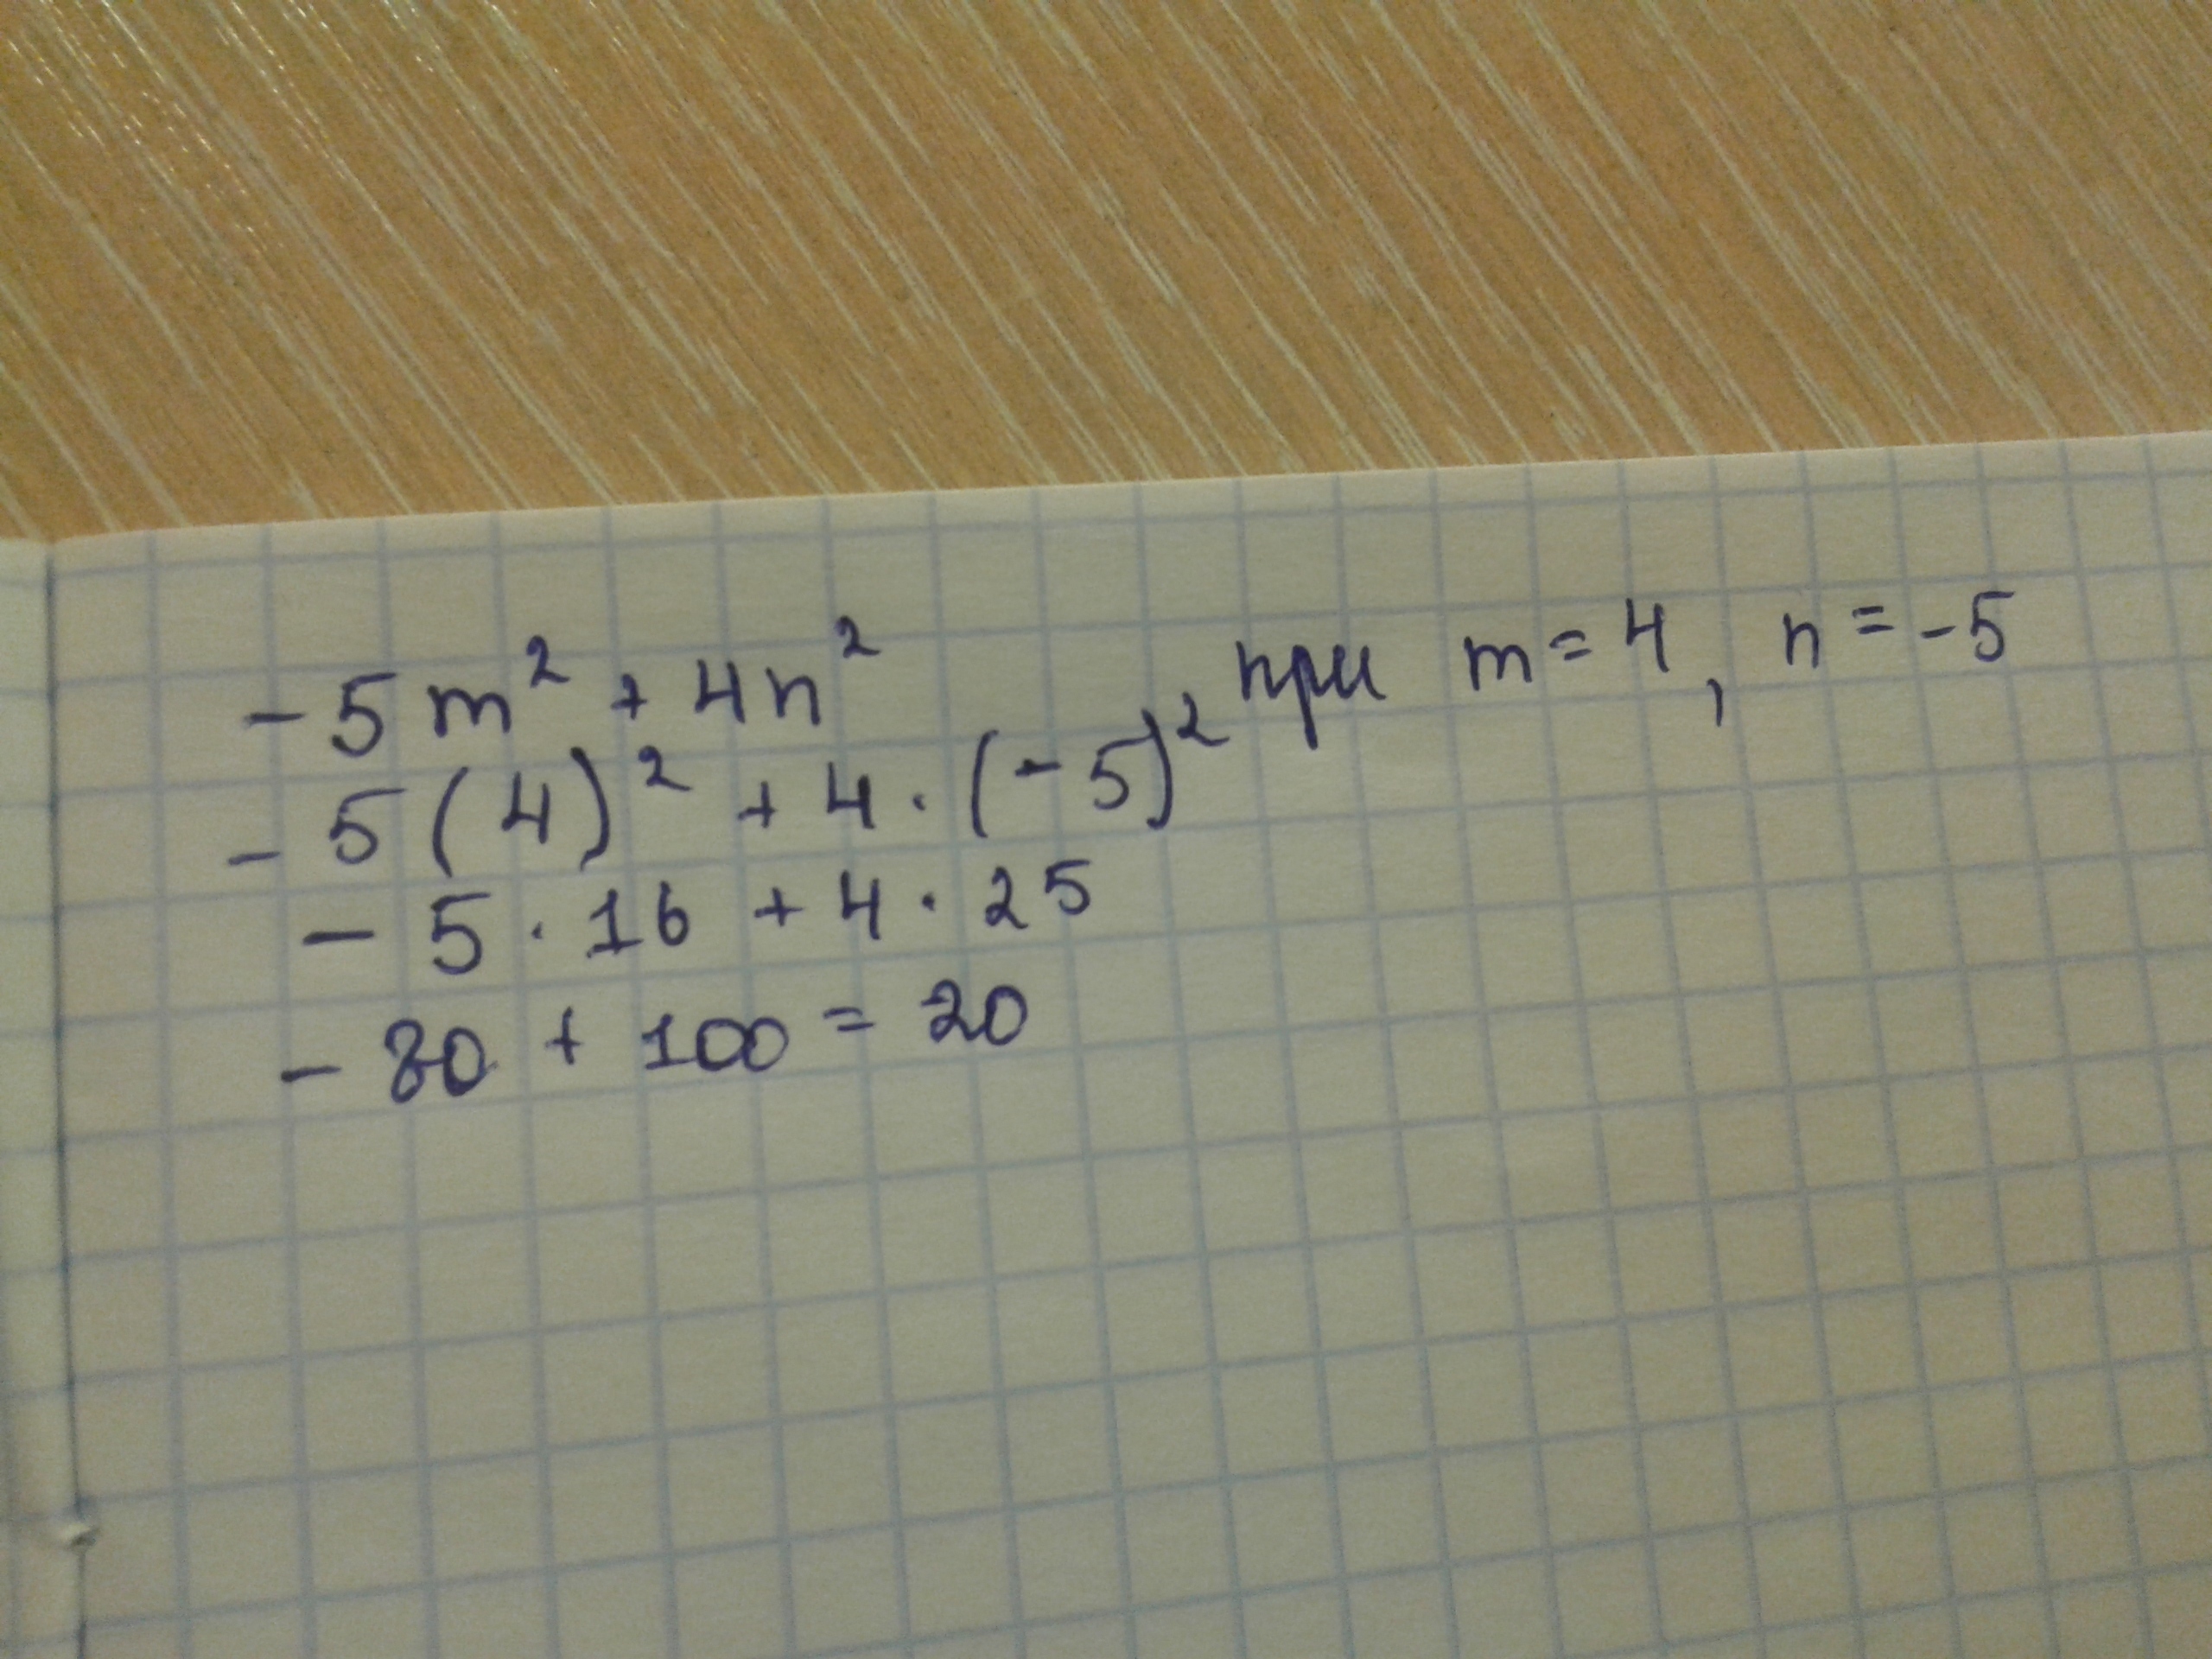 -5m² + 4n² при m = 4, n = -5
-5(4)² + 4·(-5)²
-5·16 + 4·25
-80 + 100 = 20